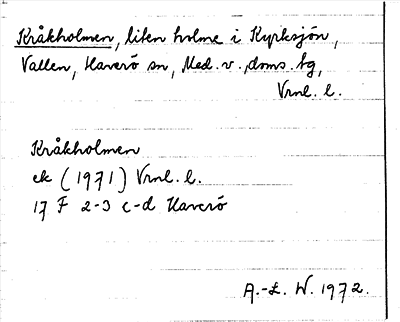 Kråkholmen, liten holme i Kyrksjön,
Vallen, Haverö sn, Med. v., doms. hg,
Vrnl. l.
Kråkholmen
ek (1971) Vrnl. l.
17 F 2-3 c-d Haverö
A.-L. W. 1972.